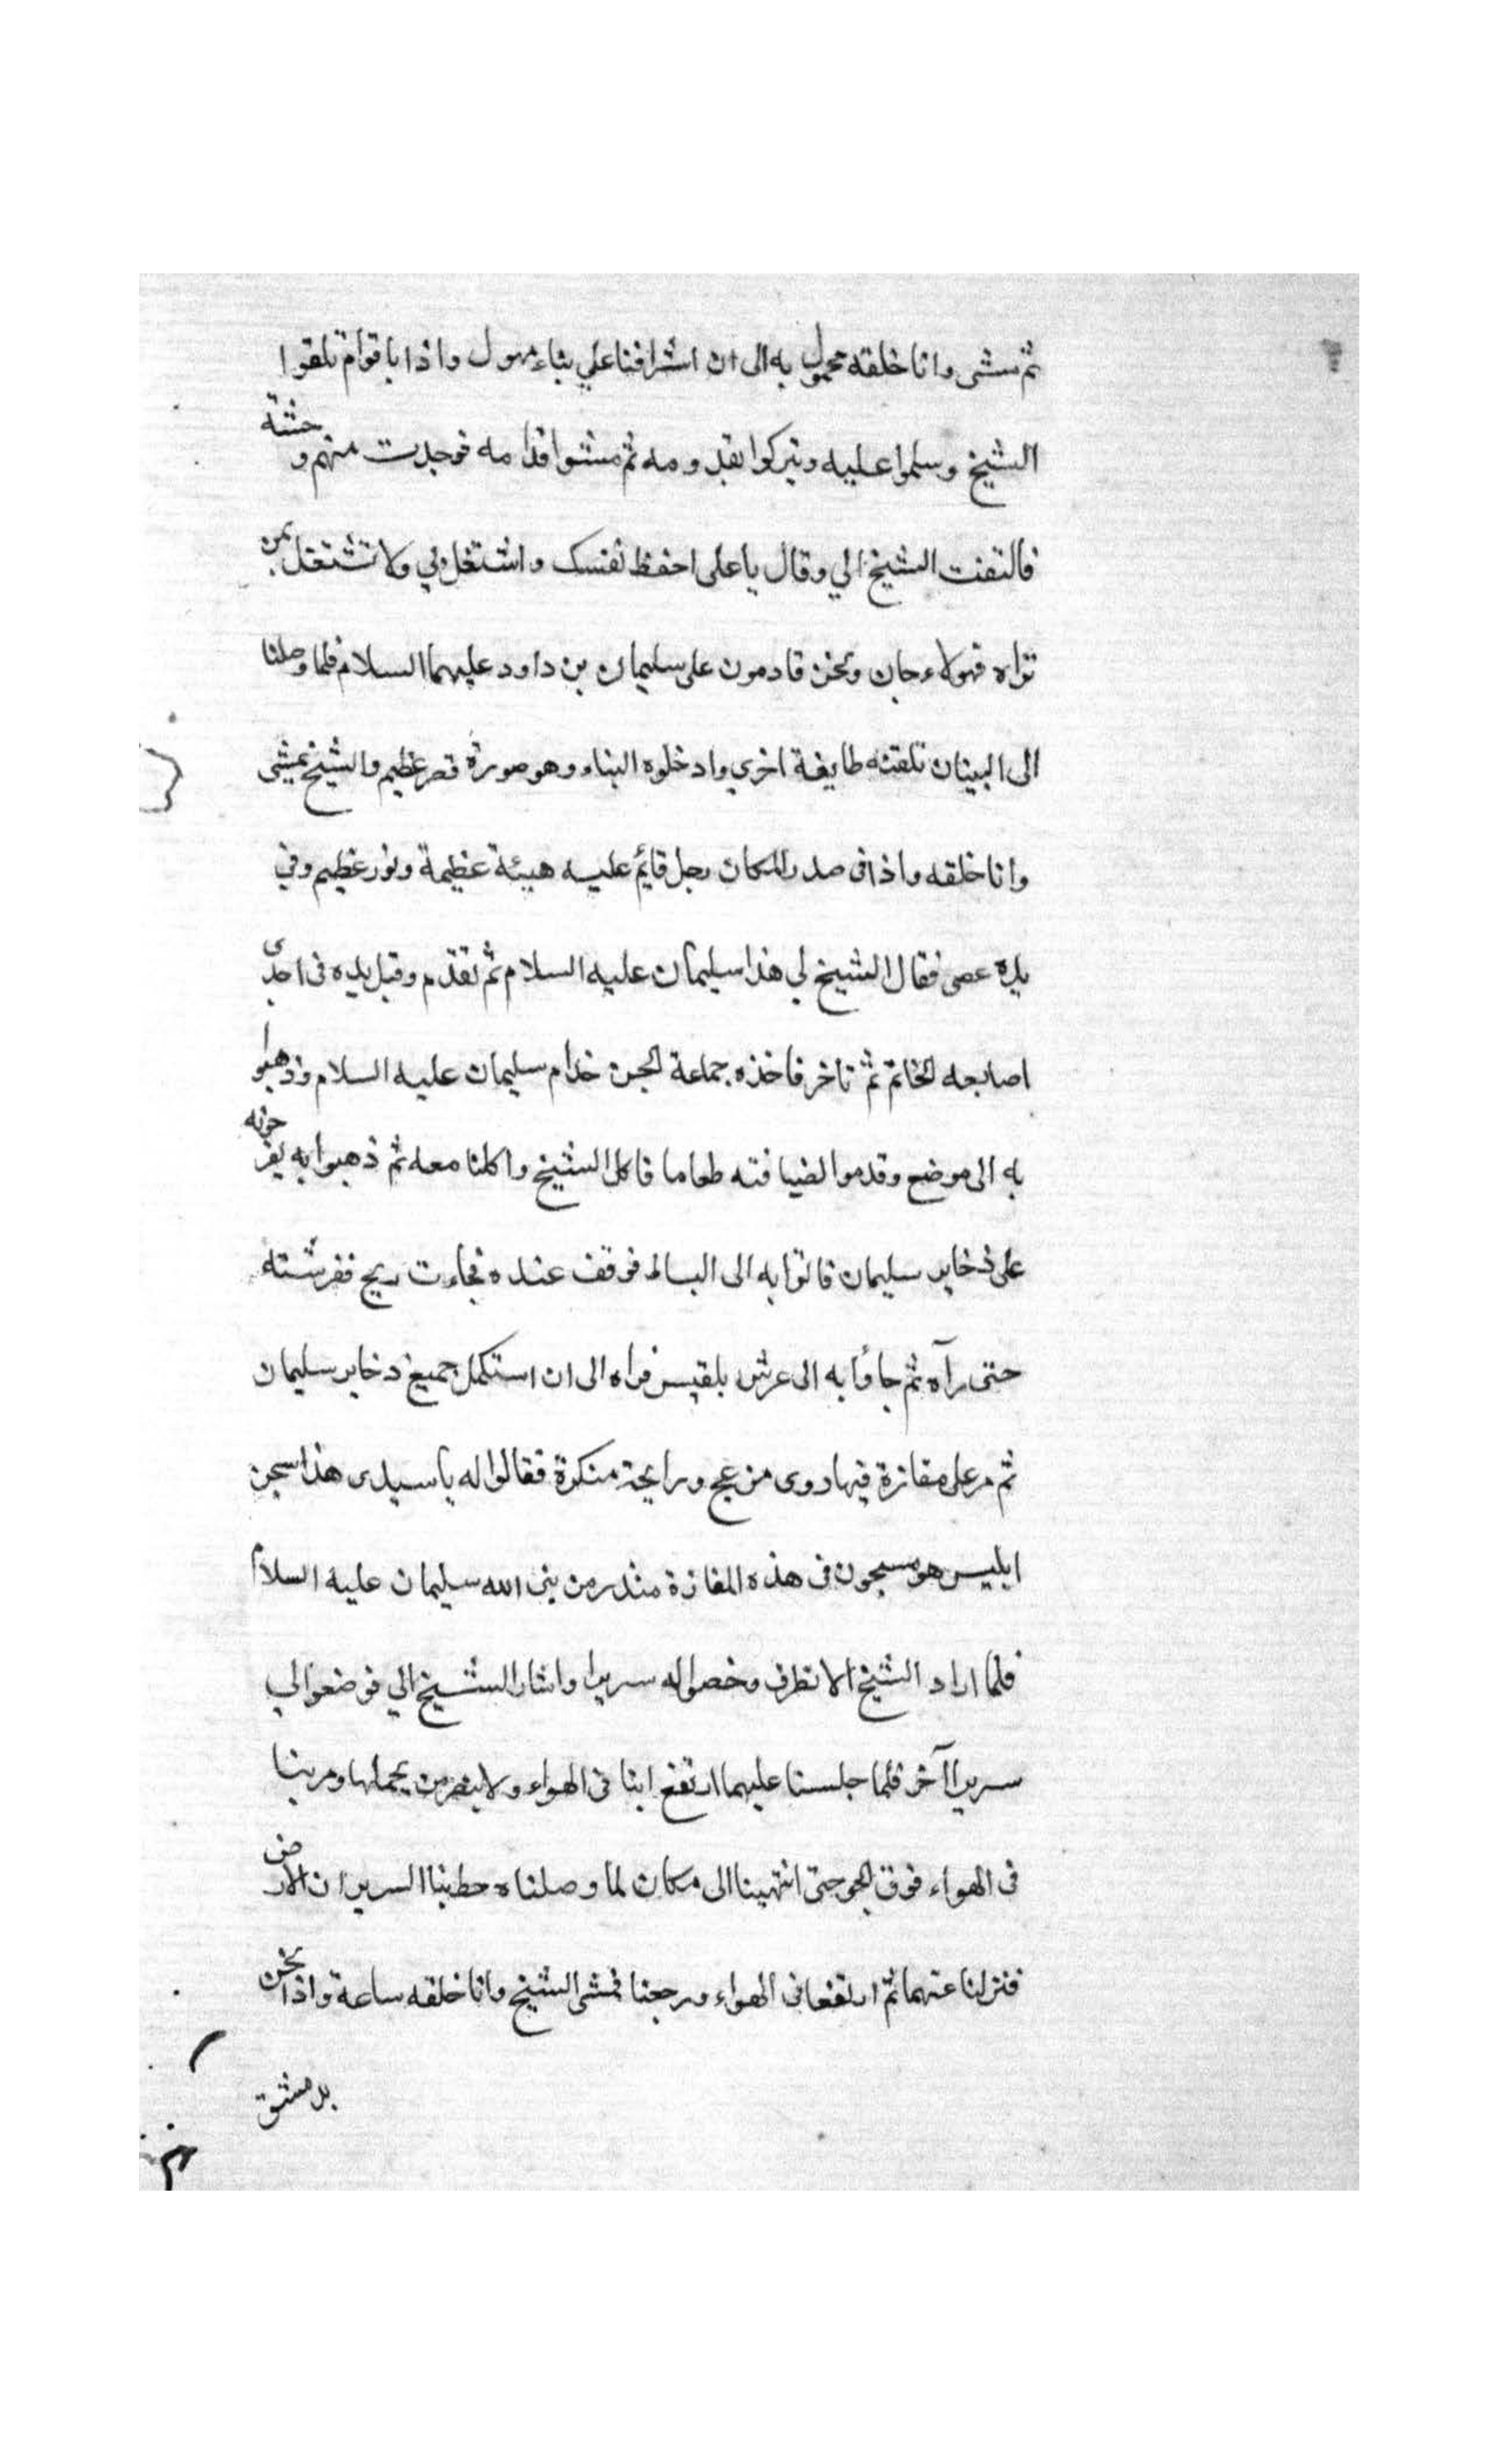 ثم مشى وانا خلفه محمول به الى ان اشرافنا علي بناء مهول واذا باقوام تلقوا
الشيخ وسلموا عليه وتبركوا بقدومه ثم مشوا قدامه فوجدت منهم وحشة
فالتفت الشيخ الي وقال يا على احفظ نفسك واشتغل بي ولا تشتغل بمن
تراه فهولاء جان ونحن قادمون على سليمان بن داود عليهما السلام فلما وصلنا
الى البينان تلقته طايفة اخري وادخلوه البناء وهو صورة قصر عظيم والشيخ يمشي
وانا خلفه واذا في صدر المكان رجل قايم عليه هيئة عظيمة ونور عظيم وفي
يده عصى فقال الشيخ لي هذا سليمان عليه السلام ثم تقدم وقبل يده في احدى
اصابعه الخاتم ثم تاخر فاخذه جماعة الجن خدام سليمان عليه السلام وذهبوا
به الى موضع وقدموا لضيافته طعاما فاكل الشيخ واكلنا معه ثم ذهبوا به يفرجونه
على ذخاير سليمان فاتوا به الى البساط فوقف عنده فجاءت ريح ففرشته
حتى رآه ثم جاؤا به الى عرش بلقيس فراه الى ان استكمل جميع ذخاير سليمان
ثم مر على مغازة فيها دوى من عج ورايحة منكرة فقالوا له يا سيدى هذا سجن
ابليس هو مسجون في هذه المغازة منذ زمن نبى الله سليمان عليه السلام
فلما اراد الشيخ الانظرف وخصوا له سريرا واشار الشيخ الي فوضعوا لي
سريرا آخر فلما جلسنا عليهما ارتفع ابنا في الهواء ولا ينضر من يحملها ومرينا
في الهواء فوق الجو حتى انتهينا الى مكان لما وصلناه حط بنا السريران الارض
فنزلنا عنهما ثم ارتفعا في الهواء ورجعنا فمشى الشيخ وانا خلفه ساعة واذا نحن
بدمشق